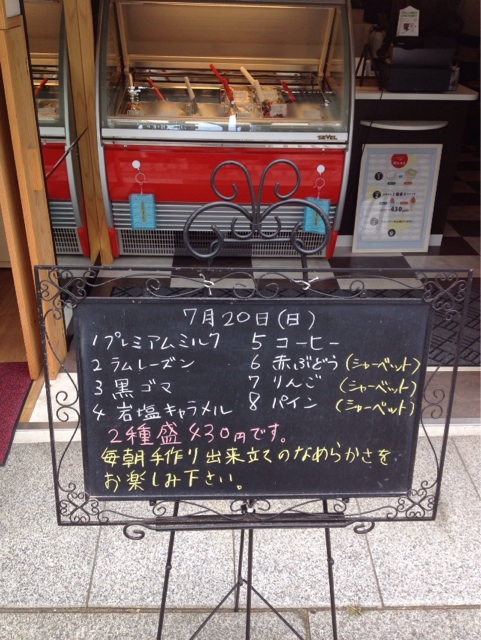 7月20日(日)
1 プレミアムミルク 5 コーヒー
2 ラムレーズン 6 赤ぶどう(シャーベット)
3 黒ゴマ 7 りんご(シャーベット)
4 岩塩キャラメル 8 パイン(シャーベット)
2種盛430円です。
毎朝手作り出来立てのなめらかさを
お楽しみ下さい。